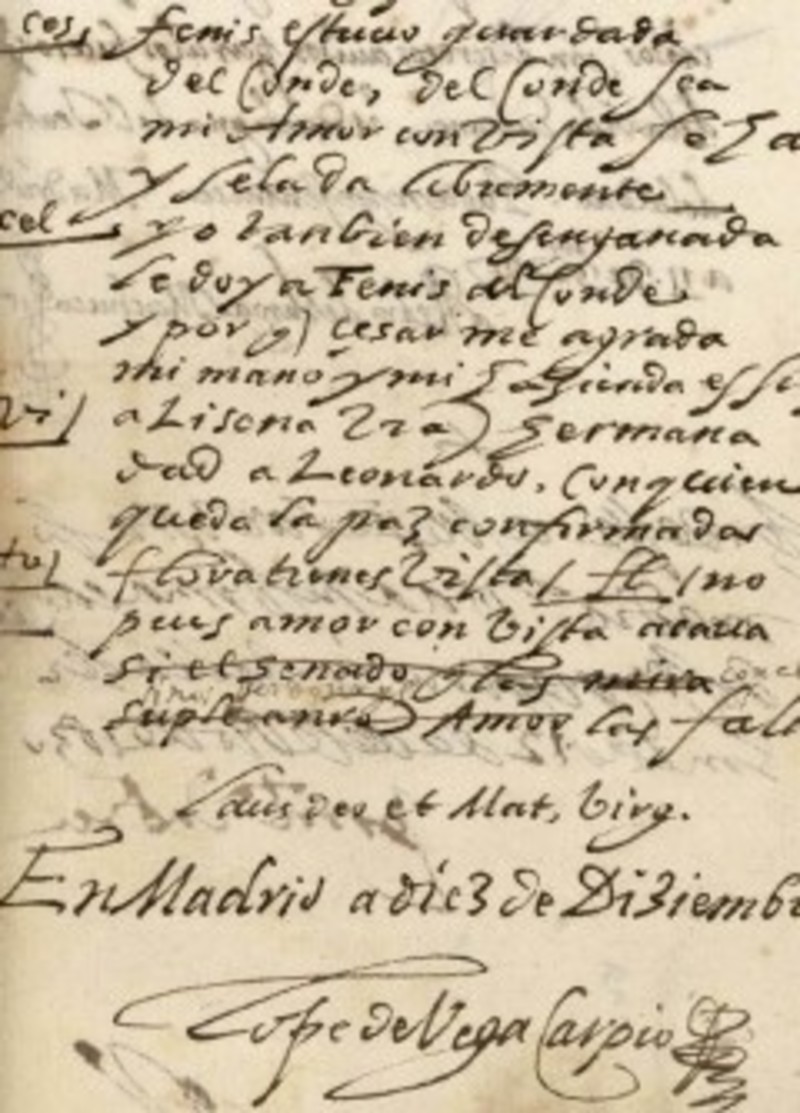 cos, fenis estuuo guardada
del Conde, del Conde sea
mi Amor con vista se ha
y sela da libremente
cel yo tanbien desenganada
le doy a Fenis al Conde
y por q Cesar me agrada
mi mano y mi hazienda
a Lisena vra hermana
dad a Leonardo, con quien
queda la paz confirmada
flora tienes vista fl no
pues amor con vista acaua
si el senado mira
suple Amor las falt
Laus deo et Mat, virg.
En Madrid a diez de Diziemb
Lope de Vega Carpio